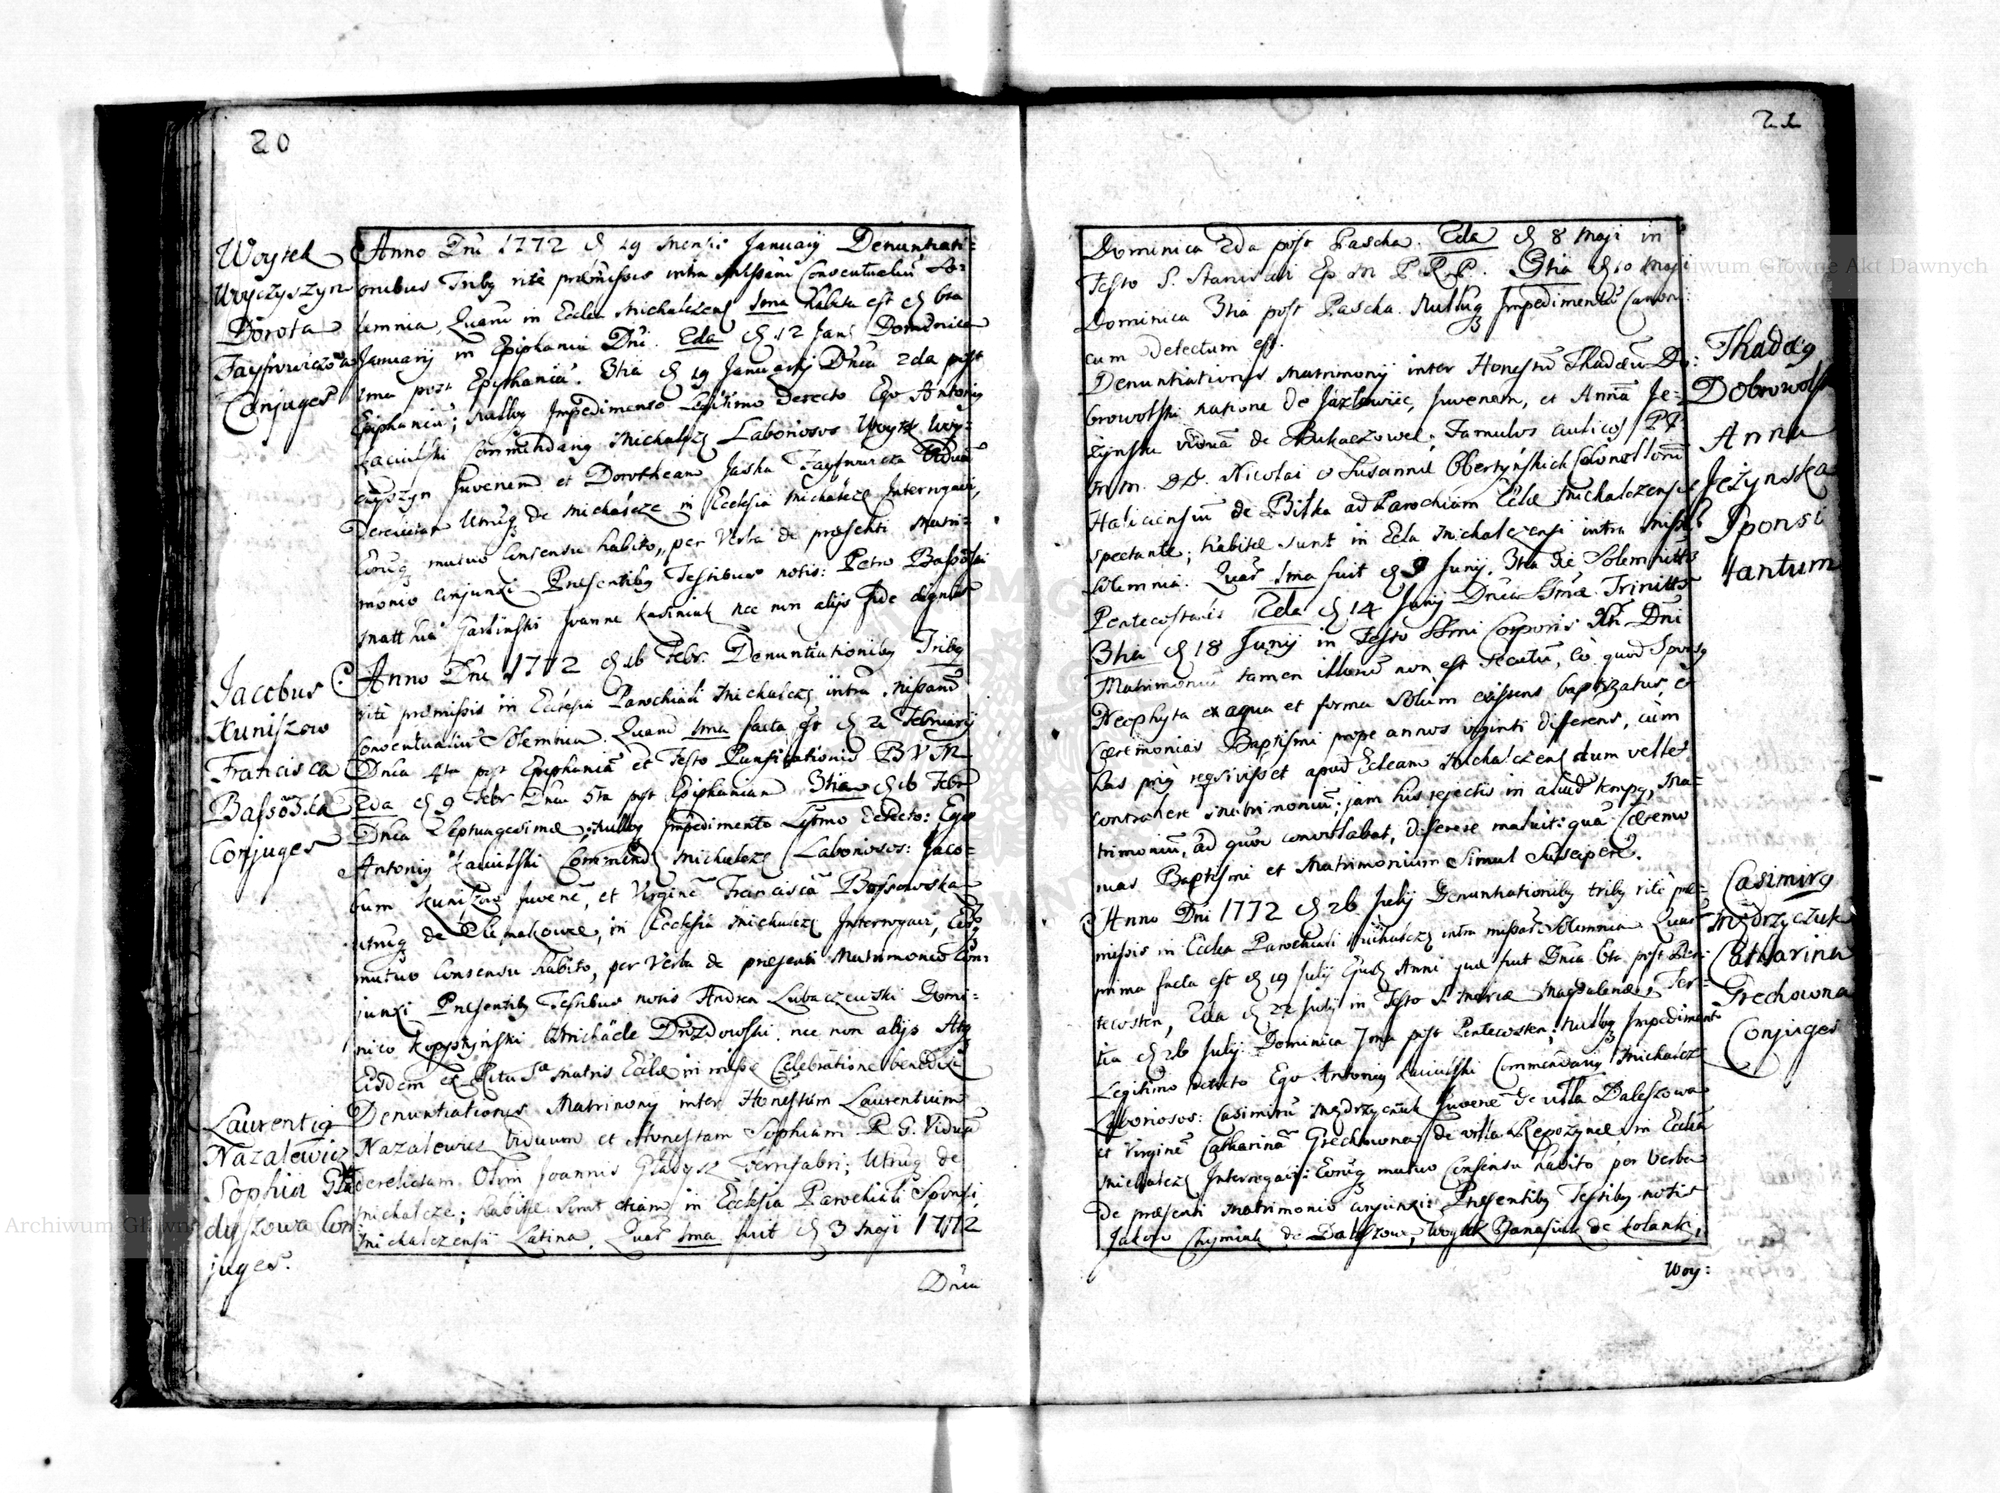 20
Woytek
Woyczyszyn
Dorota
Tayfrowiczowa
Conjuges
Anno Dni 1772 d 19 mensis Januarij Denuntiati=
onibus Tribq rite præmissis intra Missam Conventualiū So=
lemnia, Quarū in Eccla Michalczens 1ma habita est d 6ta
Januarij in Epiphania Dni. 2da d 12 Jan: Dominica
1ma post Epiphaniā. 3tia d 19 Januarij Dnica 2da post
Epiphaniā; nulloq Impedimento Legitimo detecto Ego Antoniq
Commendariq Michalczs Laboriosos Woytek Woy=
czyszyn Juvenem et Dorotheam Jaska Viduam
Derelictam Utrūq de Michalcze in Ecclesia Michalcze Interrogavi,
Eorūq mutuo Consensu habito, per Verba de præsenti Matri=
monio conjunxi Præsentibq Testibus notis: Petro
Matthia Joanne nec non alijs fide dignis
Jacobus
Kuniszow
Francisca
Bassowska
Conjuges
Anno Dni 1772 d 16 Febr. Denuntiationibq Tribq
rite præmissis in Ecclesia Parochiali Michalczs intra Missarū
Conventualiū Solemnia. Quarū 1ma facta est d 2 Februarij
Dnica 4ta post Epiphaniā et Festo Purificationis B V M
2da d 9 Febr Dnica 5ta post Epiphaniam 3tia d 16 Febr
Dnica Septuagesimæ; nulloq Impedimento Lgtmo detecto: Ego
Antoniq Commends Michalcze Laboriosos: Jaco=
bum Kuniszow Juvenē, et Virginē Franciscā Bassowska
utrūq de in Ecclesia Michalczs Interrogavi, Eorq
mutuo Consensu habito, per Verba de præsenti Matrimonio Con=
junxi Præsentibq Testibus notis Andrea Lubaczewski Domi=
nico Michaele Drozdowski, nec non alijs Atq
Eisdem ex Ritu S. Matris Eccliæ in missæ Celebratione benedixi
Laurentiq
Nazalewicz
Sophia Gła
dyszowa Con
juges.
Denuntiationes Matrimonij inter Honestum Laurentium
Nazalewicz Viduum et Honestam Sophiam R. G. Viduā
derelictam Olim Joannis Gładysz Ferrifabri; Utrūq de
Michalcze; habitæ sunt etiam in Ecclesia Parochiali Sponsi
Michalczensi Latina. Quarū 1ma fuit d 3 Maji 1772
Dnica
21
Dominica 2da post Pascha. 2da d 8 Maji in
Festo S. Stanislai Ep M P. R. P. 3tia d 10 Maji
Dominica 3tia post Pascha. Nullūq Impedimentū Canoni
cum detectum est.
Thadæq
Dobrowolski
Anna
Jeżynska
Sponsi
tantum
Denuntiationes Matrimonij inter Honestū Thadæum Do:
browolski natione de Jazłowiec, Juvenem, et Annā Je=
żynska viduā de Famulos aulicos PP.
M.M. DD. Nicolai & Susannæ Obertyńskich
Haliciensiū de Bilka ad Parochiam Eccliæ Michalczensis
spectante; habitæ sunt in Eccla Michalczensi intra Missarū
solemnia. Quarū 1ma fuit d 9 Junij. 3tia die Solemnitts
Pentecostalis 2da d 14 Junij Dnica SSmæ Trinitts
3tia d 18 Junij in Festo SSmi Corporis Xti Dni
Matrimoniū tamen illorū non est secutū, eò quod Sponsq
Neophyta ex aqua et forma solùm existens baptizatus, et
Cæremonias Baptismi prope annos viginti differens, cùm
has priq reqsivisset apud Ecleam Michalczens dum vellet
contrahere matrimoniū; jam his rejectis in aliud tempq, Ma=
trimoniū, ad quod convolabat, differre maluit: quā Cæremo
nias Baptismi et Matrimonium simul suscipere.
Casimirq
Mędrzyczuk
Catharina
Grechowna
Conjuges
Anno Dni 1772 d 26 Julij Denuntiationibq tribq rite præ=
missis in Ecclea Parochiali Michalczs intra missarū Solemnia Quarū
prima facta est d 19 Julij Ejusd Anni quæ fuit Dnica 6ta post Pen:
tecosten, 2da d 22 Julij in Festo S. Mariæ Magdalenæ, Ter=
tia d 26 Julij Dominica 7ma post Pentecosten; nulloq Impedimento
Legitimo detecto Ego Antoniq Commendariq Michalcz
Laboriosos: Casimirū Mędrzyczuk Juvenē de villa Daleszowa
et Virginē Catharinā Grechowna de villa Repozynce in Ecclea
Michalczs Interrogavi: Eorūq mutuo Consensu habito per Verba
de præsenti Matrimonio conjunxi: Præsentibq Testibq notis
Jakobo Chymiak de Daleszowa, Woytek Banasiuk de Kolanki,
Woy:
Archiwum Główne Akt Dawnych